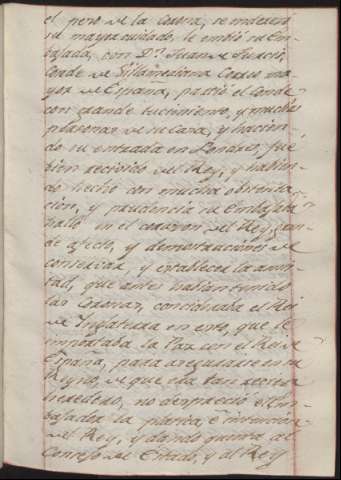 el peso de la Corona, se moderó
su mayor cuidado, le embió su Em-
bajada, con Dn. Juan de Tassis,
Conde de Villamediana Correo ma-
yor de España, partió el Conde
con grande lucimiento, y muchas
personas de su Casa, y hacien-
do su entrada en Londres, fue
bien recivido del Rey, y habien-
do hecho con mucha obstenta-
cion, y prudencia su Embajada
halló en el corazon del Rey, gran-
de afecto, y demostraciones de
conservar, y establecer la amis-
tad, que antes habian tenido
las Coronas, consideraba el Rei
de Inglaterra en esto, que le
importaba la Paz con el Rei de
España, para asegurarse en su
Reyno, de que era tan
heredero, no despreció el Em-
bajador la platica, e intencion
del Rey, y dando quenta al
Consejo de Estado, y al Rey